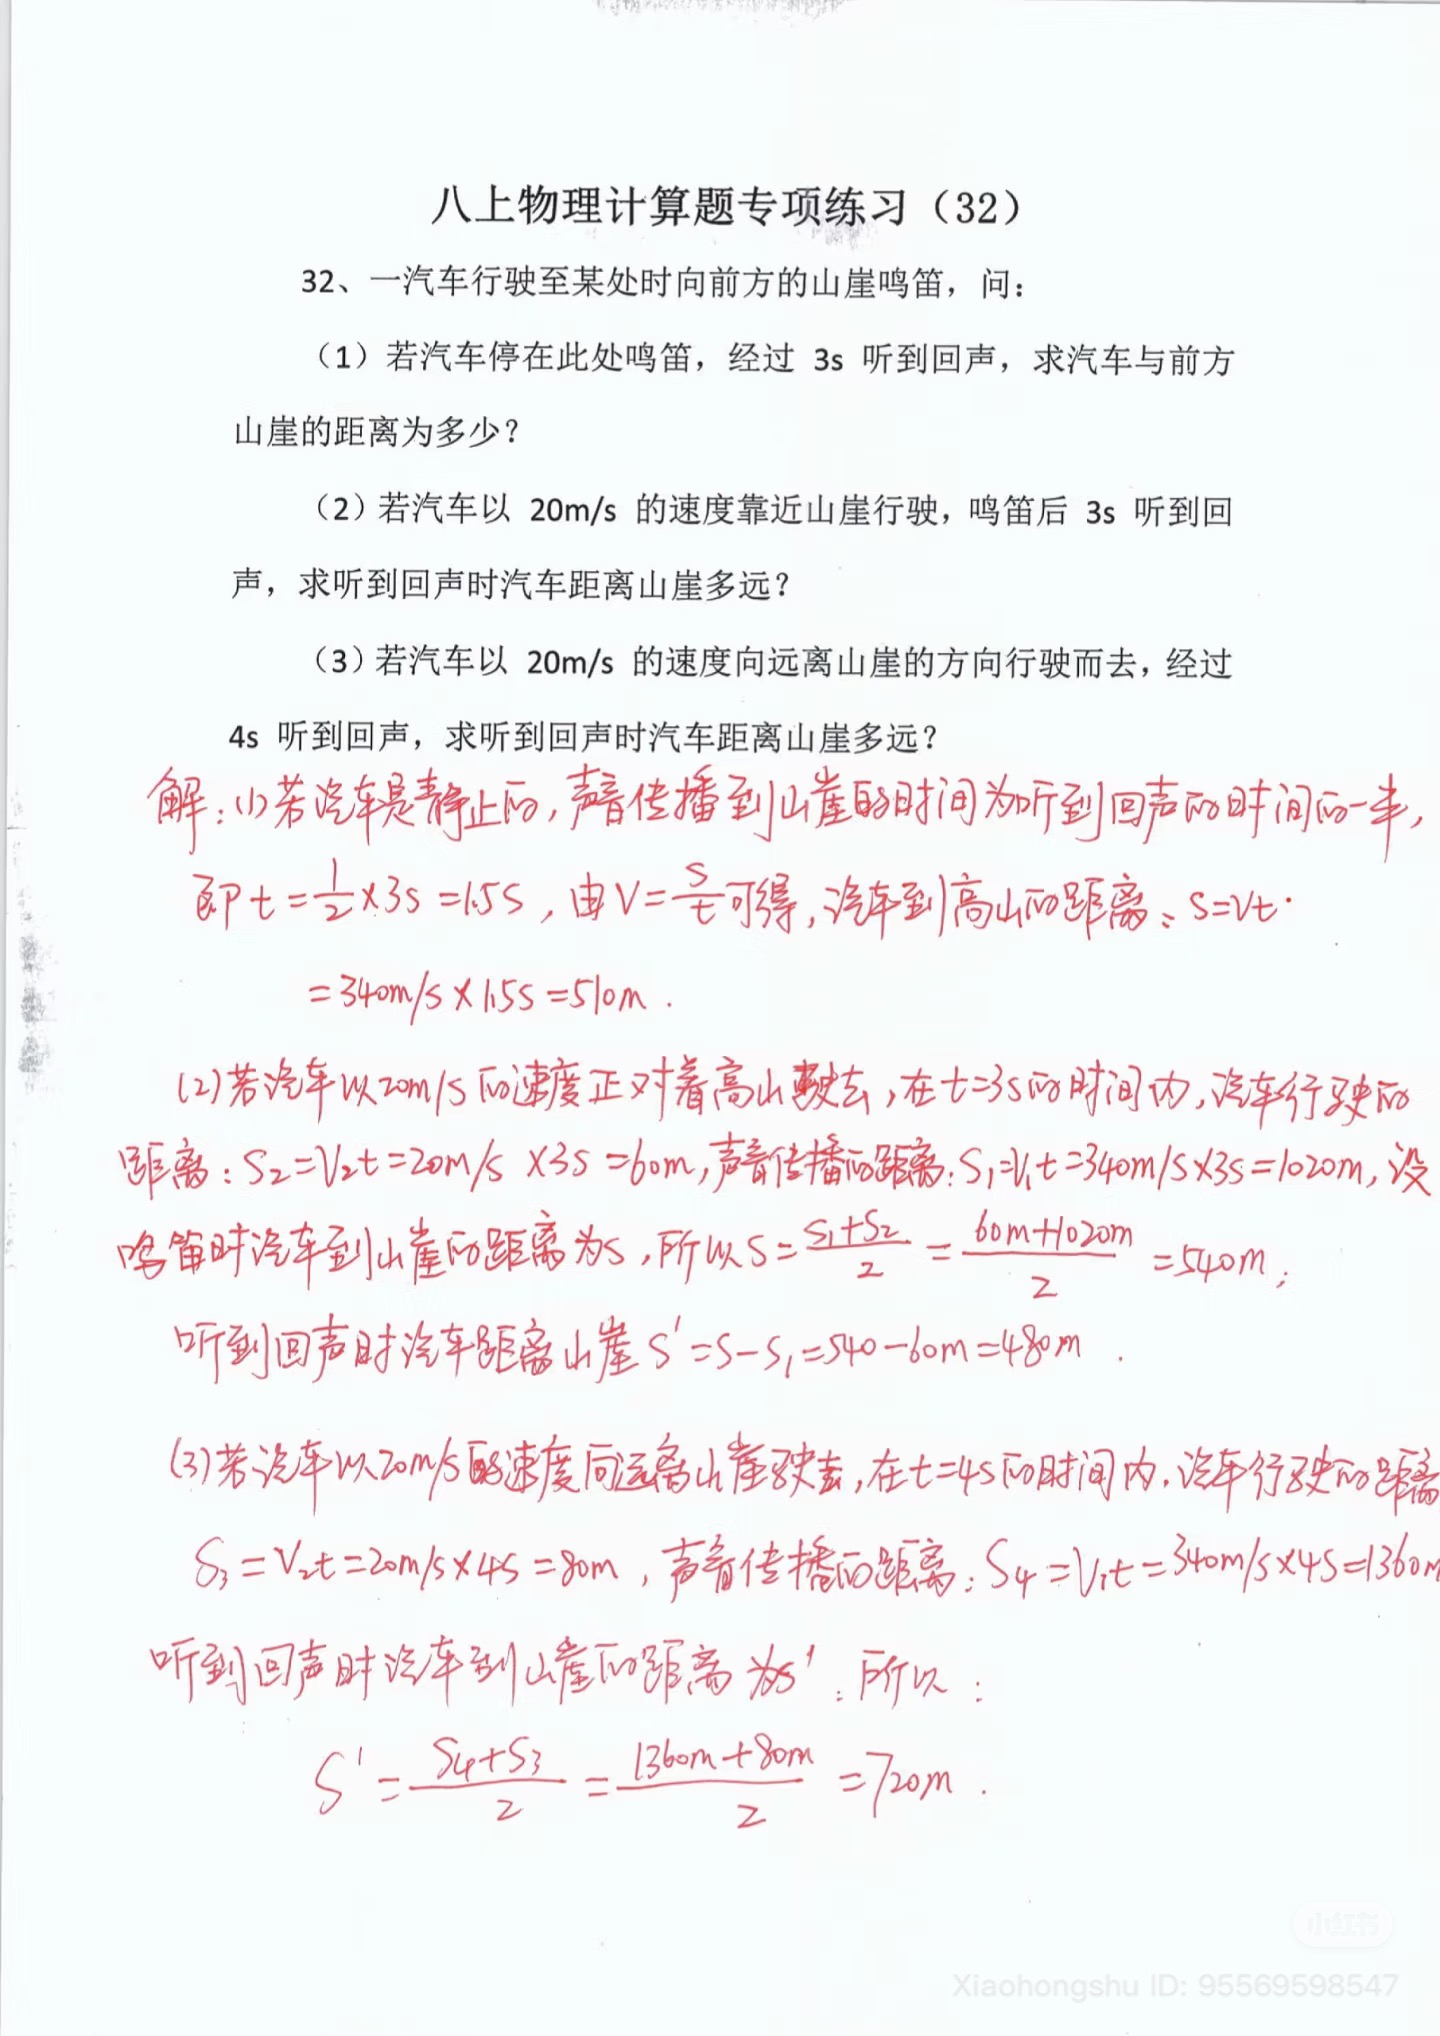 八上物理计算题专项练习（32）
32、一汽车行驶至某处时向前方的山崖鸣笛，问：
（1）若汽车停在此处鸣笛，经过 3s 听到回声，求汽车与前方
山崖的距离为多少？
（2）若汽车以 20m/s 的速度靠近山崖行驶，鸣笛后 3s 听到回
声，求听到回声时汽车距离山崖多远？
（3）若汽车以 20m/s 的速度向远离山崖的方向行驶而去，经过
4s 听到回声，求听到回声时汽车距离山崖多远？
解：(1)若汽车是静止的，声音传播到山崖的时间为听到回声的时间的一半，
即t=1/2×3s=1.5s，由V=s/t可得，汽车到高山的距离：S=Vt
=340m/s×1.5s=510m．
(2)若汽车以20m/s的速度正对着高山驶去，在t=3s的时间内，汽车行驶的
距离：S₂=V₂t=20m/s ×3s=60m，声音传播的距离：S₁=V₁t=340m/s×3s=1020m，设
鸣笛时汽车到山崖的距离为s，所以S=(S₁+S₂)/2=(60m+1020m)/2=540m；
听到回声时汽车距离山崖S′=S-S₁=540-60m=480m．
(3)若汽车以20m/s的速度向远离山崖驶去，在t=4s的时间内，汽车行驶的距离
S₃=V₂t=20m/s×4s=80m，声音传播的距离：S₄=V₁t=340m/s×4s=1360m
听到回声时汽车到山崖的距离为s′：所以：
S′=(S₄+S₃)/2=(1360m+80m)/2=720m．
小红书
Xiaohongshu ID: 95569598547